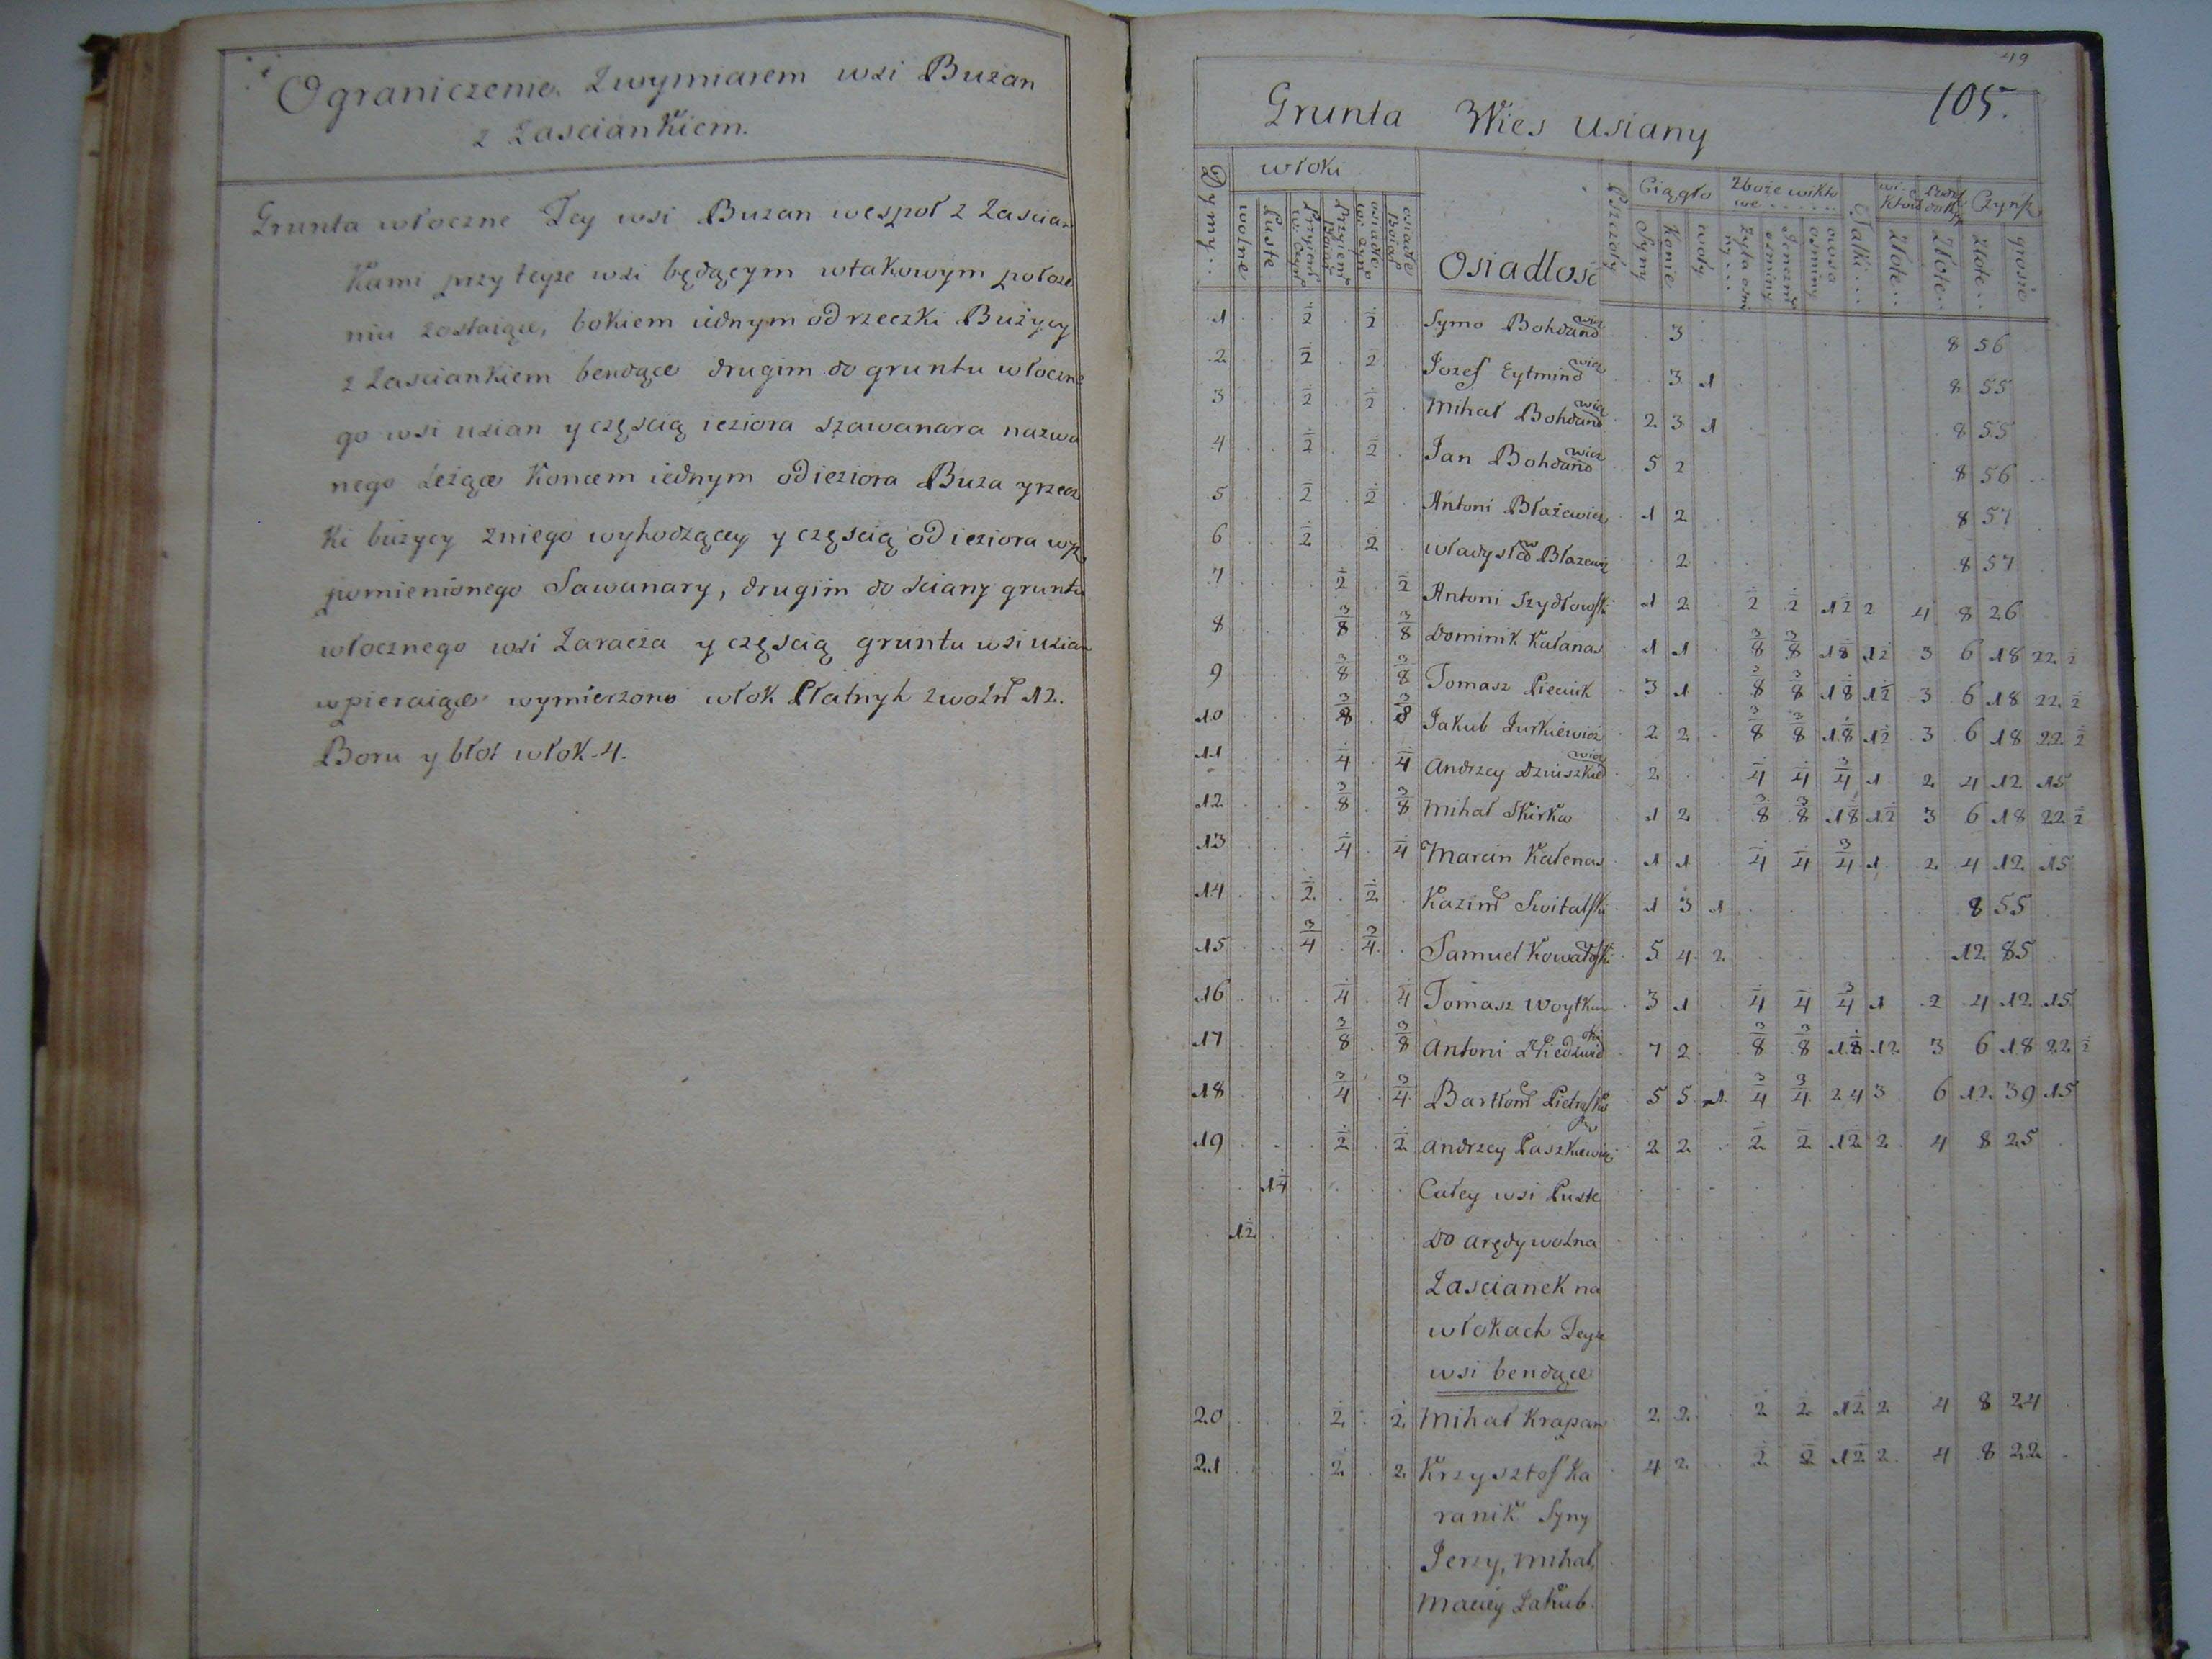 Ograniczenie Zwymiarem wsi Buzan
z Zasciankiem.
Grunta włoczne Tey wsi Buzan wespoł z Zascian
Kami przy teyze wsi będącym wtakowym połoze
niu zostaiące, bokiem iednym od rzeczki Bużycy
z Zasciankiem bendące drugim do gruntu włoczne
go wsi uzian y częscią ieziora szawanara nazwa
nego Leżące Koncem iednym od ieziora Buza y rzecz
Ki bużycy zniego wyhodzącey y częscią od ieziora wyz
pomienionego Sawanary, drugim do sciany gruntu
włocznego wsi Zaracża y częscią gruntu wsi uzian
wpieraiące wymierzono włok Płatnyh zwoln 12.
Boru y błot włok 4.
49
105.
Grunta Wies Usiany
Dymy... włoki Osiadłosc Pszczoły Ciągło Zboze wikto we..... Czynsz
wolne Puste Syny Konie woły Złote.. Złote.. Złote.. grosze
1 2 2 Symo Bohdanowicz 3 8 56
2 2 2 Jozef Eytminowicz 3 1 8 55
3 2 2 Mihał Bohdanowicz 2 3 1 8 55
4 2 2 Jan Bohdanowicz 5 2 8 56
5 2 2 Antoni Błażewicz 1 2 8 57
6 2 2 Władysław Błazewicz 2 8 57
7 2 2 Antoni Szydłowski 1 2 2 2 12 2 4 8 26
8 3/8 3/8 Dominik Kałanas 1 1 3/8 3/8 18 12 3 6 18 22 2
9 3/8 3/8 Tomasz Pieciuk 3 1 3/8 3/8 18 12 3 6 18 22 2
10 3/8 3/8 Jakub Jurkiewicz 2 2 3/8 3/8 18 12 3 6 18 22 2
11 4 4 Andrzey Dziuszkiewicz 2 4 4 3/4 1 2 4 12 15
12 3/8 3/8 Mihał Skirka 1 2 3/8 3/8 18 12 3 6 18 22 2
13 4 4 Marcin Kałenas 1 1 4 4 3/4 1 2 4 12 15
14 2 2 Kazim Switalski 1 3 1 8 55
15 3/4 3/4 Samuel Kowalski 5 4 2 12 85
16 4 4 Tomasz Woytkun 3 1 4 4 3/4 1 2 4 12 15
17 3/8 3/8 Antoni 7 2 3/8 3/8 18 12 3 6 18 22 2
18 3/4 3/4 Bartłom 5 5 1 3/4 3/4 2 4 3 6 12 39 15
19 2 2 Andrzey Paszkiewicz 2 2 2 2 12 2 4 8 25
14 Całey wsi Puste
12 Do arędy wolna
Zascianek na
włokach Teyze
wsi bendące
20 2 2 Mihał Krapan 2 2 2 2 12 2 4 8 24
21 2 2 Krzysztof Ka 4 2 2 2 12 2 4 8 22
ranik Syny
Jerzy, Mihał,
Maciey Jakub.